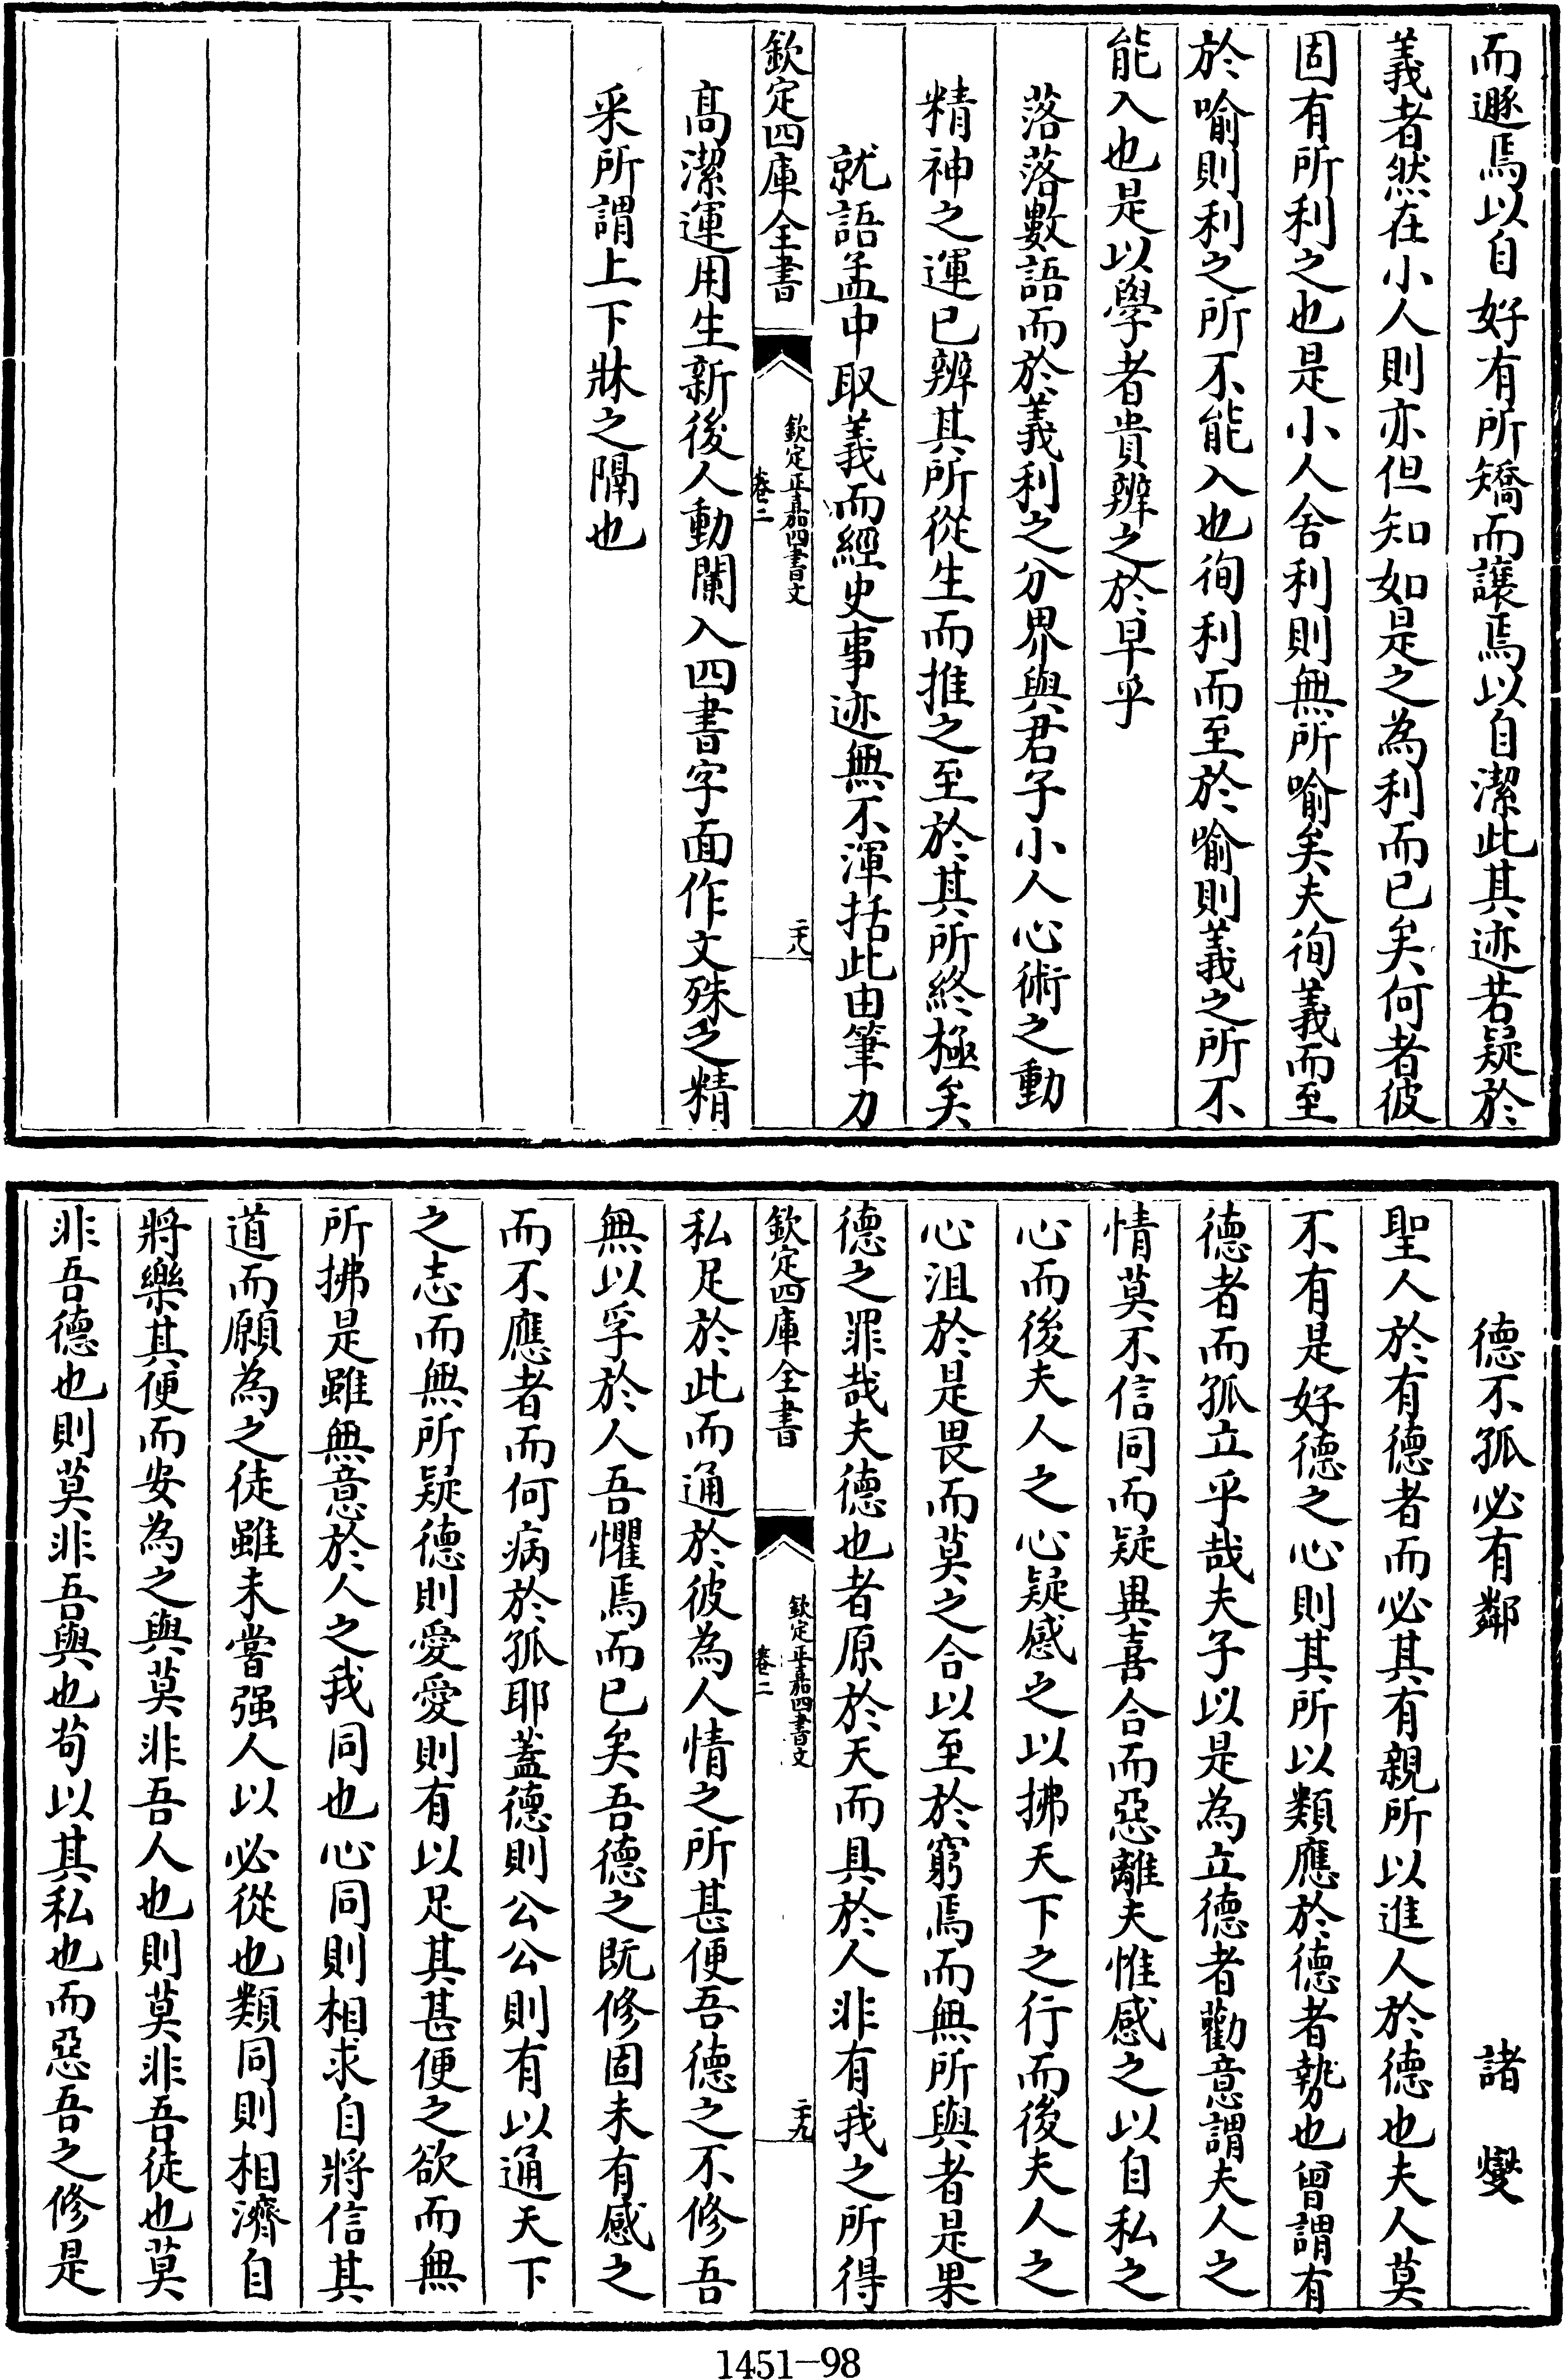 而遯焉以自好有所矯而讓焉以自潔此其迹若疑於
義者然在小人則亦但知如是之為利而已矣何者彼
固有所利之也是小人舍利則無所喻矣夫徇義而至
於喻則利之所不能入也徇利而至於喻則義之所不
能入也是以學者貴辨之於早乎
落落數語而於義利之分界與君子小人心術之動
精神之運已辨其所從生而推之至於其所終極矣
就語孟中取義而經史事迹無不渾括此由筆力
欽定四庫全書
欽定正嘉四書文
卷二
二十八
高潔運用生新後人動闌入四書字面作文殊之精
采所謂上下牀之隔也
德不孤必有鄰
諸燮
聖人於有德者而必其有親所以進人於德也夫人莫
不有是好德之心則其所以類應於德者勢也曾謂有
德者而孤立乎哉夫子以是為立德者勸意謂夫人之
情莫不信同而疑異喜合而惡離夫惟感之以自私之
心而後夫人之心疑感之以拂天下之行而後夫人之
心沮於是畏而莫之合以至於窮焉而無所與者是果
德之罪哉夫德也者原於天而具於人非有我之所得
欽定四庫全書
欽定正嘉四書文
卷二
二十九
私足於此而通於彼為人情之所甚便吾德之不修吾
無以孚於人吾懼焉而已矣吾德之既修固未有感之
而不應者而何病於孤耶蓋德則公公則有以通天下
之志而無所疑德則愛愛則有以足其甚便之欲而無
所拂是雖無意於人之我同也心同則相求自將信其
道而願為之徒雖未嘗强人以必從也類同則相濟自
將樂其便而安為之與莫非吾人也則莫非吾徒也莫
非吾德也則莫非吾與也苟以其私也而惡吾之修是
1451-98